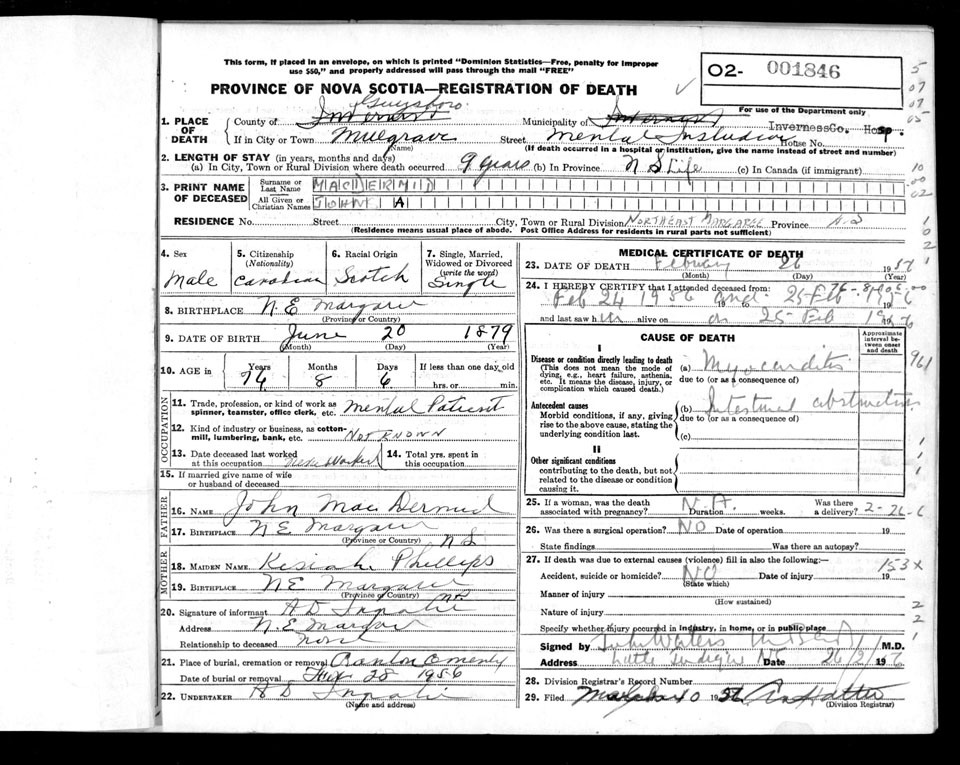 This form, if placed in an envelope, on which is printed "Dominion Statistics—Free, penalty for improper
use $50," and properly addressed will pass through the mail "FREE"
O2- 001846
PROVINCE OF NOVA SCOTIA—REGISTRATION OF DEATH
For use of the Department only
Guysboro
1. PLACE OF DEATH
County of Inverness Municipality of Inverness
InvernessCo. Hosp.
If in City or Town Mulgrave Street Mental Institution House No.
(Name) (If death occurred in a hospital or institution, give the name instead of street and number)
2. LENGTH OF STAY (in years, months and days)
(a) In City, Town or Rural Division where death occurred 9 years (b) In Province N S Life (c) In Canada (if immigrant)
3. PRINT NAME OF DECEASED
Surname or Last Name MACDERMID
All Given or Christian Names JOHN A
RESIDENCE No. Street City, Town or Rural Division NORTHEAST MARGAREE Province N-S
(Residence means usual place of abode. Post Office Address for residents in rural parts not sufficient)
4. Sex Male
5. Citizenship (Nationality) Canadian
6. Racial Origin Scotch
7. Single, Married, Widowed or Divorced (write the word) Single
8. BIRTHPLACE N.E. Margaree
(Province or Country)
9. DATE OF BIRTH June 20 1879
(Month) (Day) (Year)
10. AGE in Years 76 Months 8 Days 6 If less than one day old
hrs. or min.
OCCUPATION
11. Trade, profession, or kind of work as spinner, teamster, office clerk, etc. Mental Patient
12. Kind of industry or business, as cotton-mill, lumbering, bank, etc. NOT KNOWN
13. Date deceased last worked at this occupation Never Worked
14. Total yrs. spent in this occupation
15. If married give name of wife or husband of deceased
FATHER
16. NAME John MacDermid
17. BIRTHPLACE N E Margaree N S
(Province or Country)
MOTHER
18. MAIDEN NAME Kesiah Phillips
19. BIRTHPLACE N E Margaree NS
(Province or Country)
20. Signature of informant A D
Address N.E. Margaree
Relationship to deceased none
21. Place of burial, cremation or removal
Date of burial or removal Feb 28 1956
22. UNDERTAKER A D
(Name and address)
MEDICAL CERTIFICATE OF DEATH
23. DATE OF DEATH February 26 19
(Month) (Day) (Year)
24. I HEREBY CERTIFY that I attended deceased from:
Feb 24 1956 and 25 Feb
19 to 19
and last saw h im alive on 25 Feb
CAUSE OF DEATH
Approximate interval between onset and death
I
Disease or condition directly leading to death
(This does not mean the mode of dying, e.g., heart failure, asthenia, etc. It means the disease, injury, or complication which caused death.)
(a) Myocarditis
due to (or as a consequence of)
Antecedent causes
Morbid conditions, if any, giving rise to the above cause, stating the underlying condition last.
(b) Intestinal obstruction
due to (or as a consequence of)
(c)
II
Other significant conditions
contributing to the death, but not related to the disease or condition causing it.
25. If a woman, was the death associated with pregnancy? N.A. Duration weeks. Was there a delivery?
2-26-6
26. Was there a surgical operation? NO Date of operation 19
State findings Was there an autopsy?
27. If death was due to external causes (violence) fill in also the following:—
153X
Accident, suicide or homicide? NO Date of injury 19
(State which)
Manner of injury
(How sustained)
Nature of injury
Specify whether injury occurred in industry, in home, or in public place
Signed by M.D.
Address Date 26/2/1956
28. Division Registrar's Record Number
29. Filed March 10 1956
(Division Registrar)